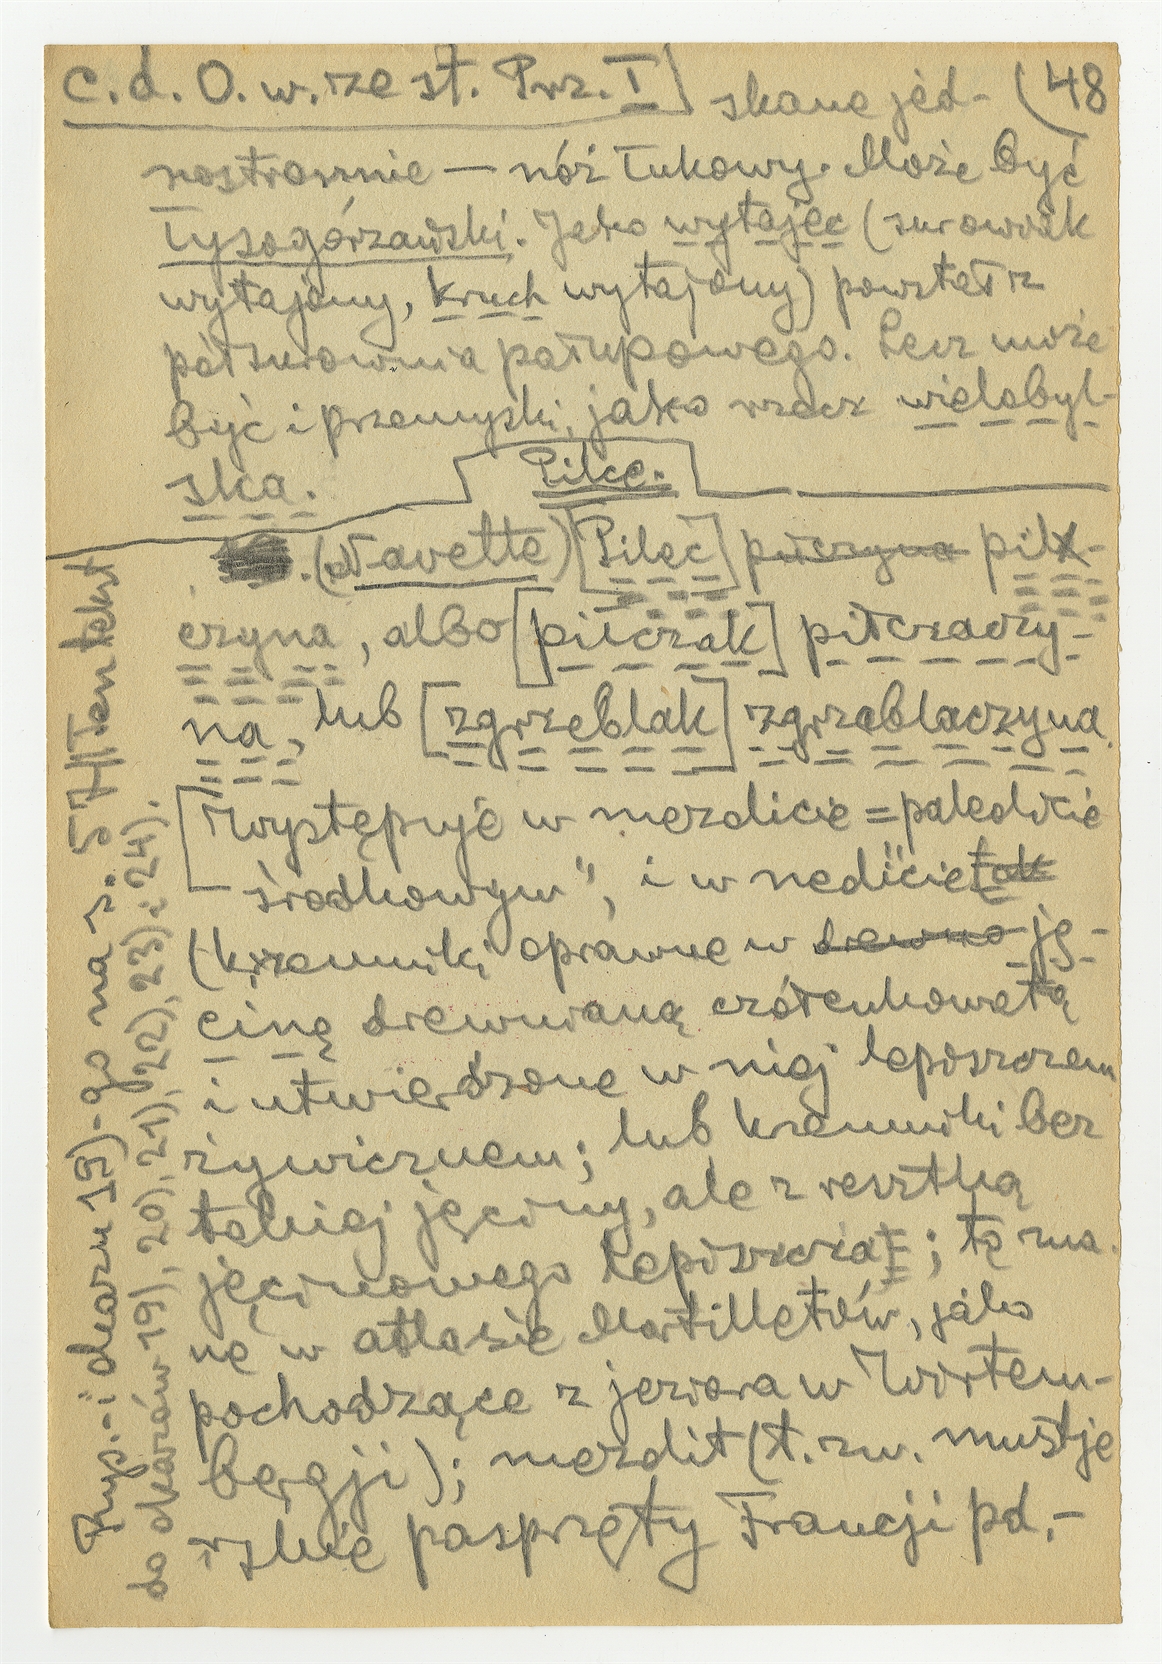 c. d. O. w. rze st. Prz. I] skane jed- (48
nostronnie — nóż łukowy. Może być
łysogórzański. Jako wyłajec (surowiak
wyłajony, kruch wyłajony) powstał z
półsurownia połupowego. Lecz może
być i przemyski, jako rzecz wielobyl-
ska.
Pilce.
(Navette) [Pileć] piłczyna pił-
czyna, albo [piłczak] piłczaczy-
na, lub [zgrzeblak] zgrzeblaczyna.
[Występuje w mezolicie = paleolicie
środkowym", i w neolicie tak
(krzemniki oprawne w drewno ję-
cinę drewnianą czółenkowatą
i utwierdzone w niej lepiszczem
żywicznem; lub krzemniki bez
takiej jęciny, ale z resztką
jęcinowego lepiszcza; tę zna-
ne w atlasie Mortilletów, jako
pochodzące z jeziora w Wirtem-
bergji); mezolit (t. zw. mustje
rskie pasprzęty Francji pd.-
Rys.-i okazu 19)-go na s. 57 i Ten tekst
do okazów 19), 20), 21), 22), 23) i 24).